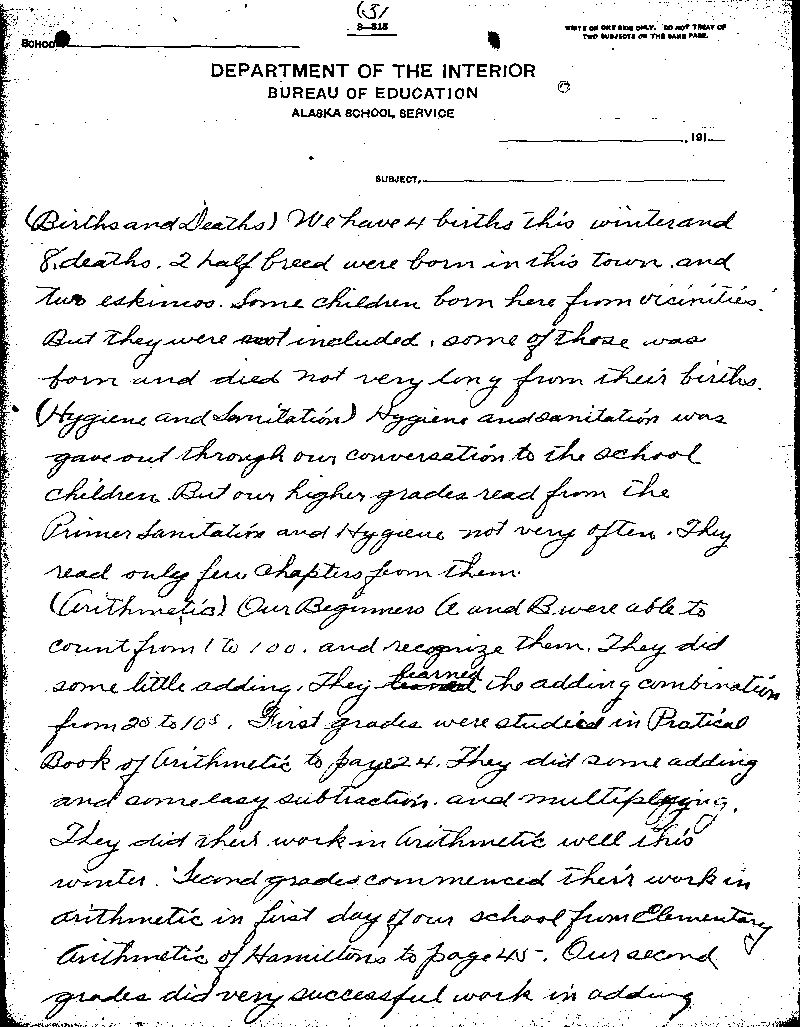 (3)
8-315
SCHOOL
WRITE ON ONE SIDE ONLY. DO NOT TREAT OF
TWO SUBJECTS ON THE SAME PAGE.
DEPARTMENT OF THE INTERIOR
BUREAU OF EDUCATION
ALASKA SCHOOL SERVICE
, 191
SUBJECT,
(Births and Deaths) We have 4 births this winter and
8, deaths. 2 half breed were born in this town and
two eskimos. Some children born here from vicinities.
But they were not included, some of those was
born and died not very long from their births.
(Hygiene and Sanitation) Hygiene and sanitation was
gave out through our conversation to the school
children. But our higher grades read from the
Primer Sanitation and Hygiene not very often. They
read only few chapters from them.
(Arithmetic) Our Beginners A and B were able to
count from 1 to 100. and recognize them. They did
some little adding. They learned the adding combination
from 2s to 10s. First grades were studied in Pratical
Book of Arithmetic to page 24. They did some adding
and some easy subtraction. and multiplying.
They did their work in Arithmetic well this
winter. Second grades commenced their work in
arithmetic in first day of our school from Elementary
Arithmetic of Hamiltons to page 45. Our second
grades did very successful work in adding